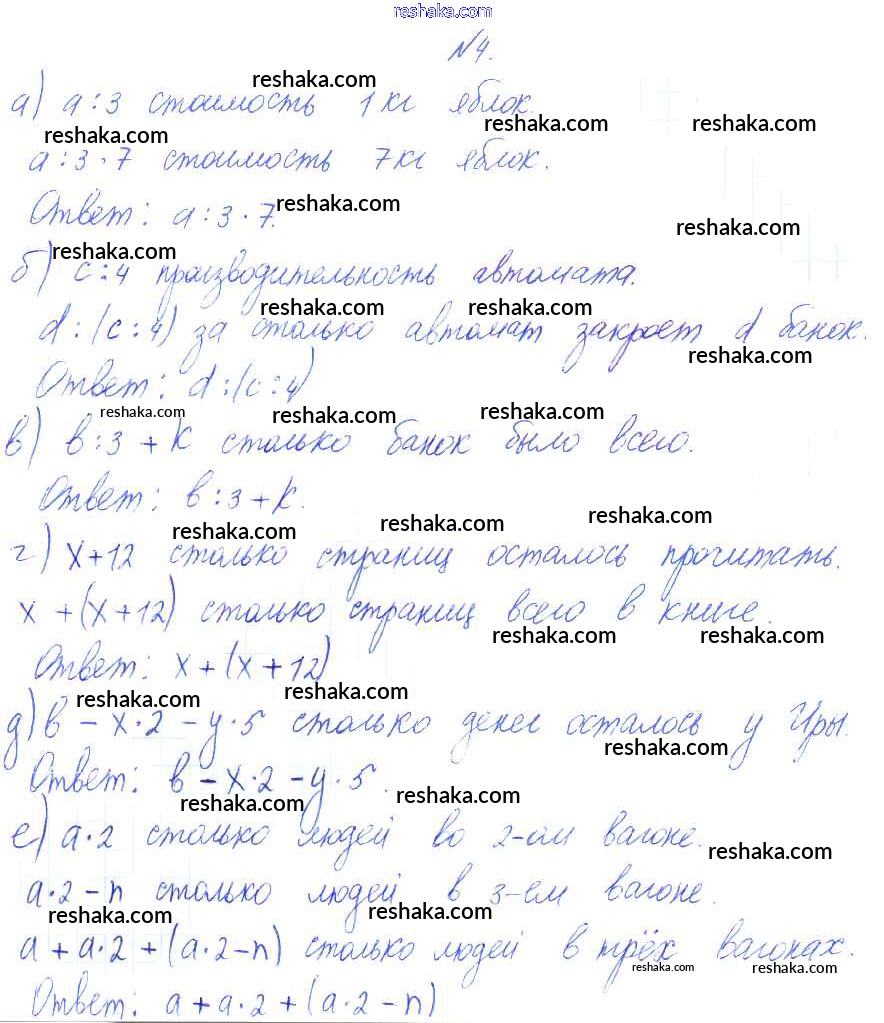 reshaka.com
№4.
reshaka.com
а) а:3 стоимость 1 кг яблок.
reshaka.com reshaka.com reshaka.com
а:3·7 стоимость 7 кг яблок.
Ответ: а:3·7. reshaka.com
reshaka.com
reshaka.com
б) с:4 производительность автомата.
reshaka.com reshaka.com
d:(с:4) за столько автомат закроет d банок.
reshaka.com
Ответ: d:(с:4)
reshaka.com reshaka.com reshaka.com
в) в:3+к столько банок было всего.
Ответ: в:3+к.
reshaka.com reshaka.com reshaka.com
г) х+12 столько страниц осталось прочитать.
х+(х+12) столько страниц всего в книге.
reshaka.com reshaka.com
Ответ: х+(х+12)
reshaka.com reshaka.com
д) в-х·2-у·5 столько денег осталось у Иры.
reshaka.com
Ответ: в-х·2-у·5.
reshaka.com reshaka.com
е) а·2 столько людей во 2-ом вагоне.
reshaka.com
а·2-n столько людей в 3-ем вагоне.
reshaka.com reshaka.com
а+а·2+(а·2-n) столько людей в трёх вагонах.
reshaka.com reshaka.com
Ответ: а+а·2+(а·2-n)